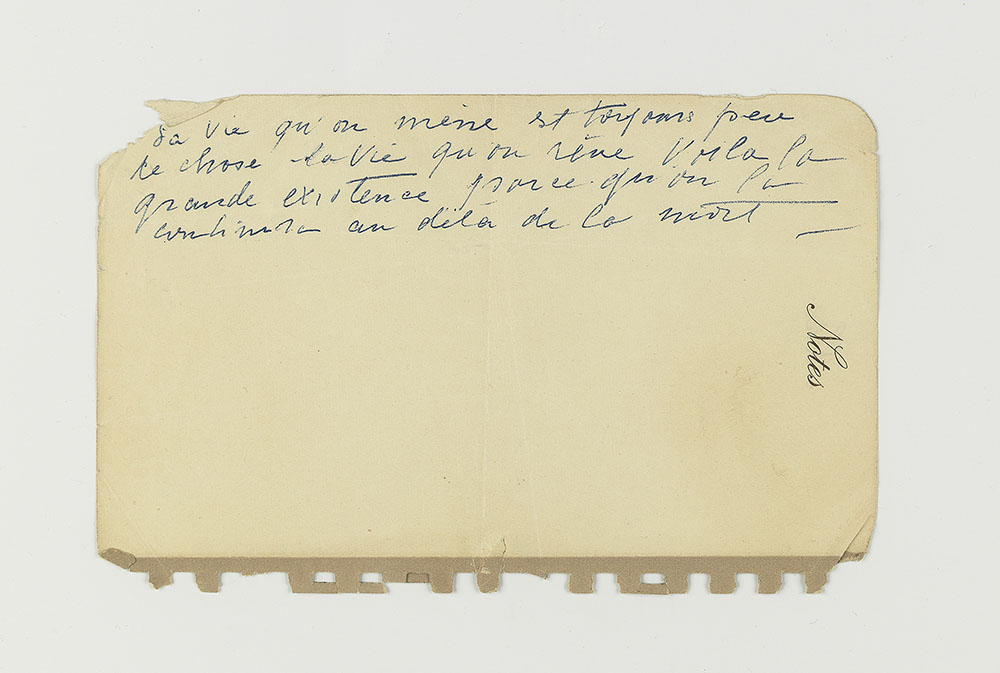 La vie qu'on mène est toujours peu
de chose la vie qu'on rêve Voilà la
grande existence parce qu'on la
continuera au délà de la mort —
Notes